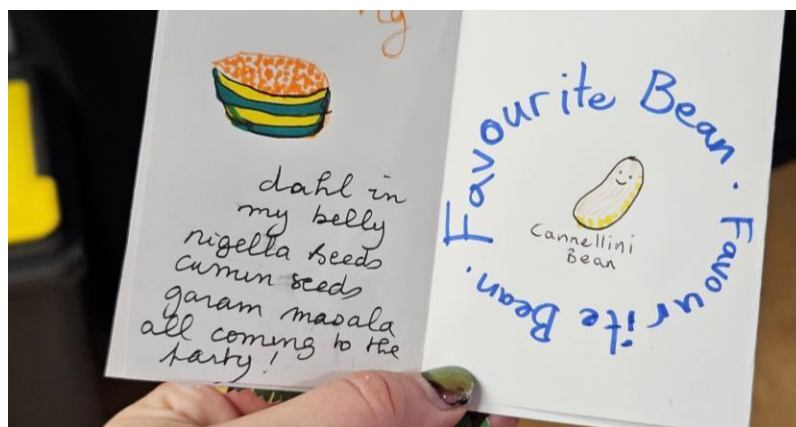 dahl in
my belly
nigella seeds
cumin seeds
garam masala
all coming to the
party!
Favourite Bean. Favourite Bean.
Cannellini
Bean